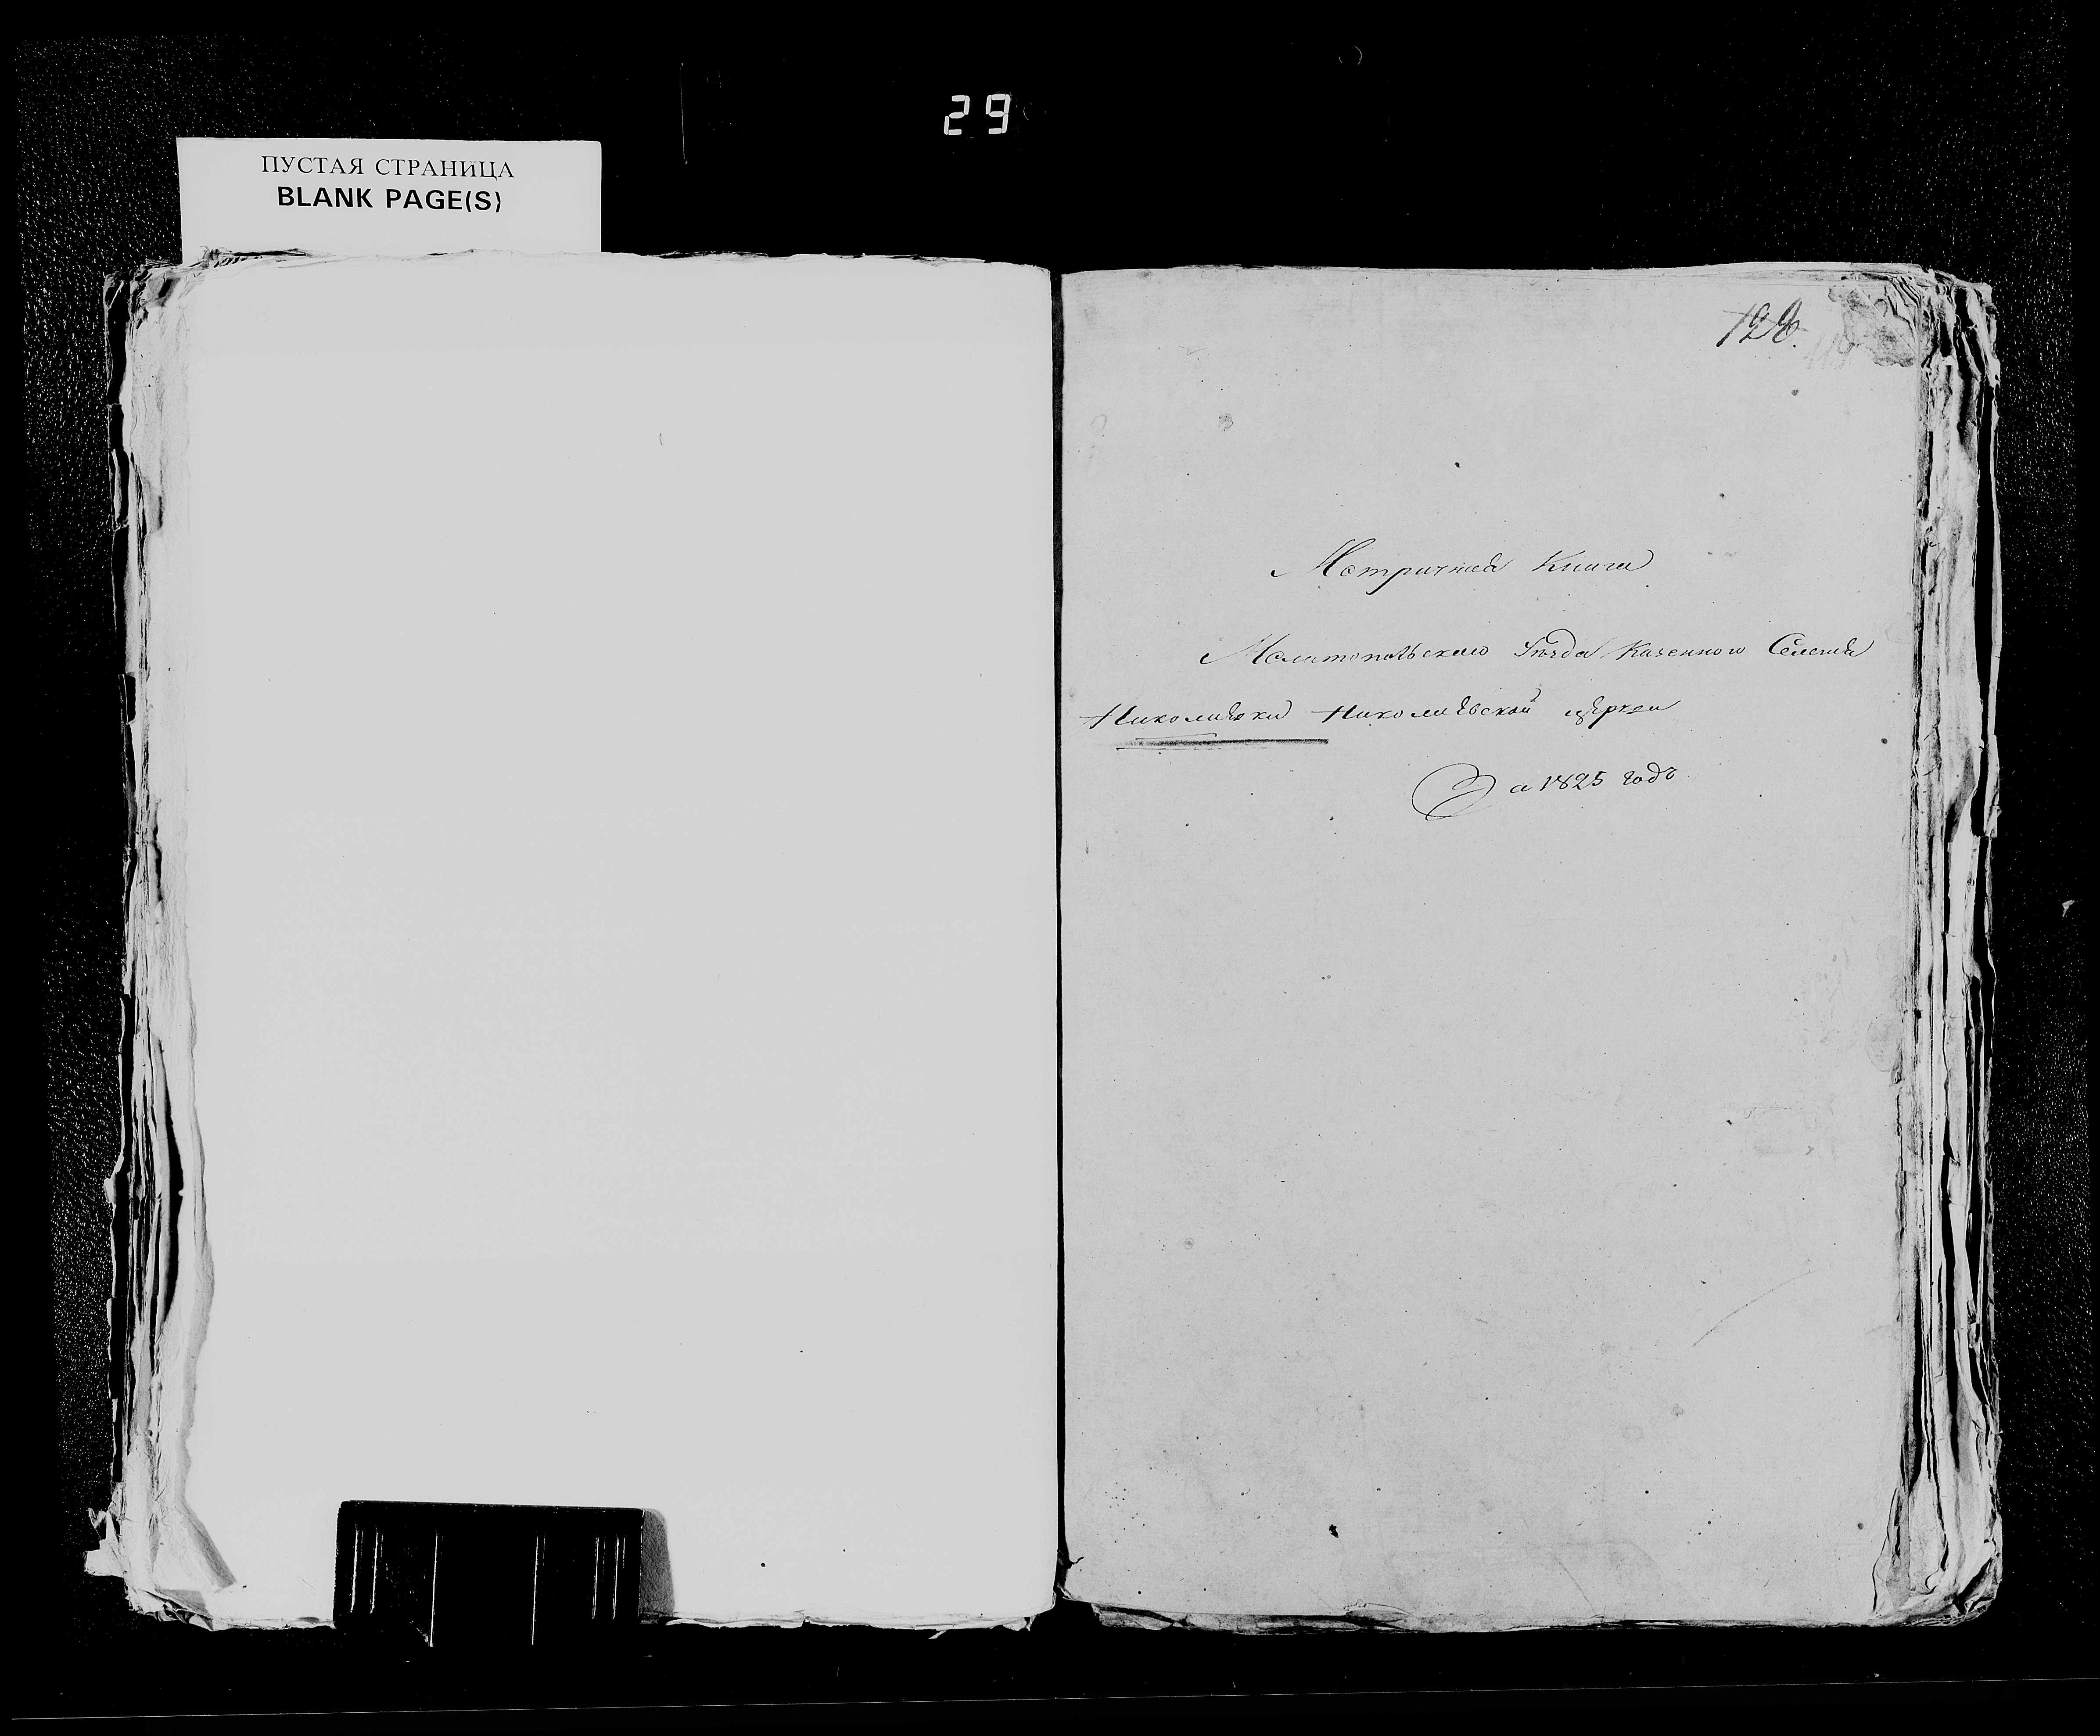 29
ПУСТАЯ СТРАНИЦА
BLANK PAGE(S)
Метричная Книга
Мелитопольскаго Уѣзда Казенного Селенія
Николаевки Николаевской церкви
За 1825 годъ